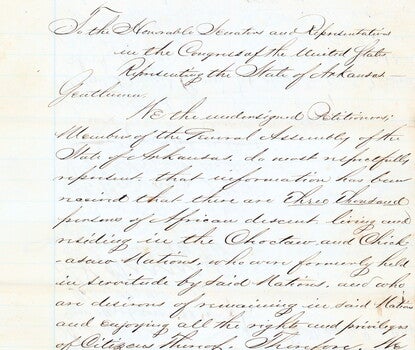 To the Honorable Senators and Representatives
in the Congress of the United States
Representing the State of Arkansas.
Gentlemen,
We the undersigned Petitioners,
Members of the General Assembly of the
State of Arkansas, do most respectfully
represent that information has been
received that there are Three Thousand
persons of African descent living and
residing in the Choctaw and Chick-
asaw Nations, who were formerly held
in servitude by said Nations, and who
are desirous of remaining in said Nations
and enjoying all the rights and privileges
of Citizens thereof. Therefore, We